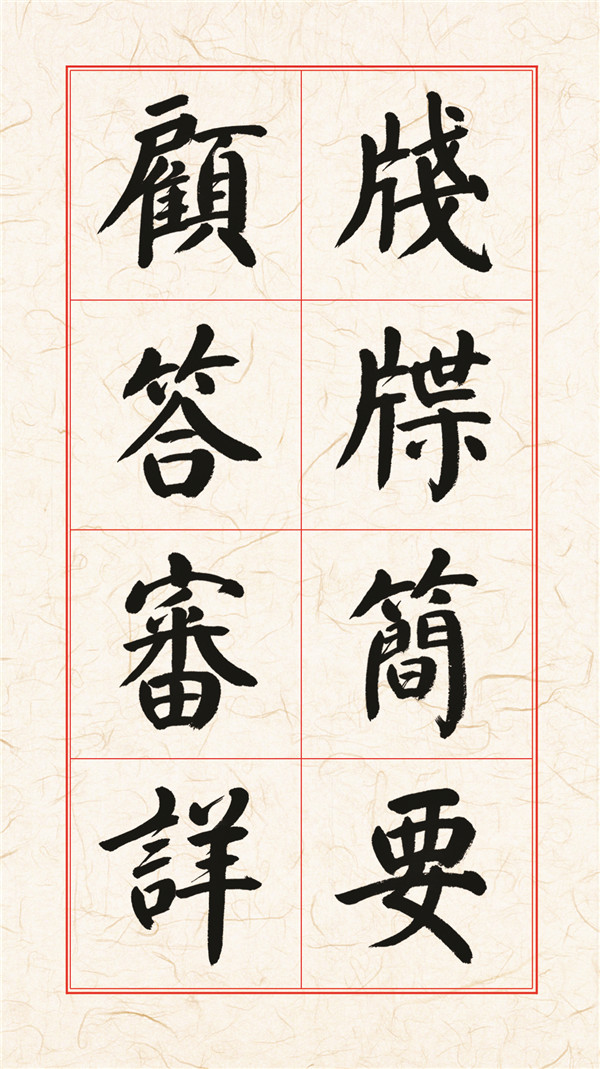 牋牒簡要
顧答審詳